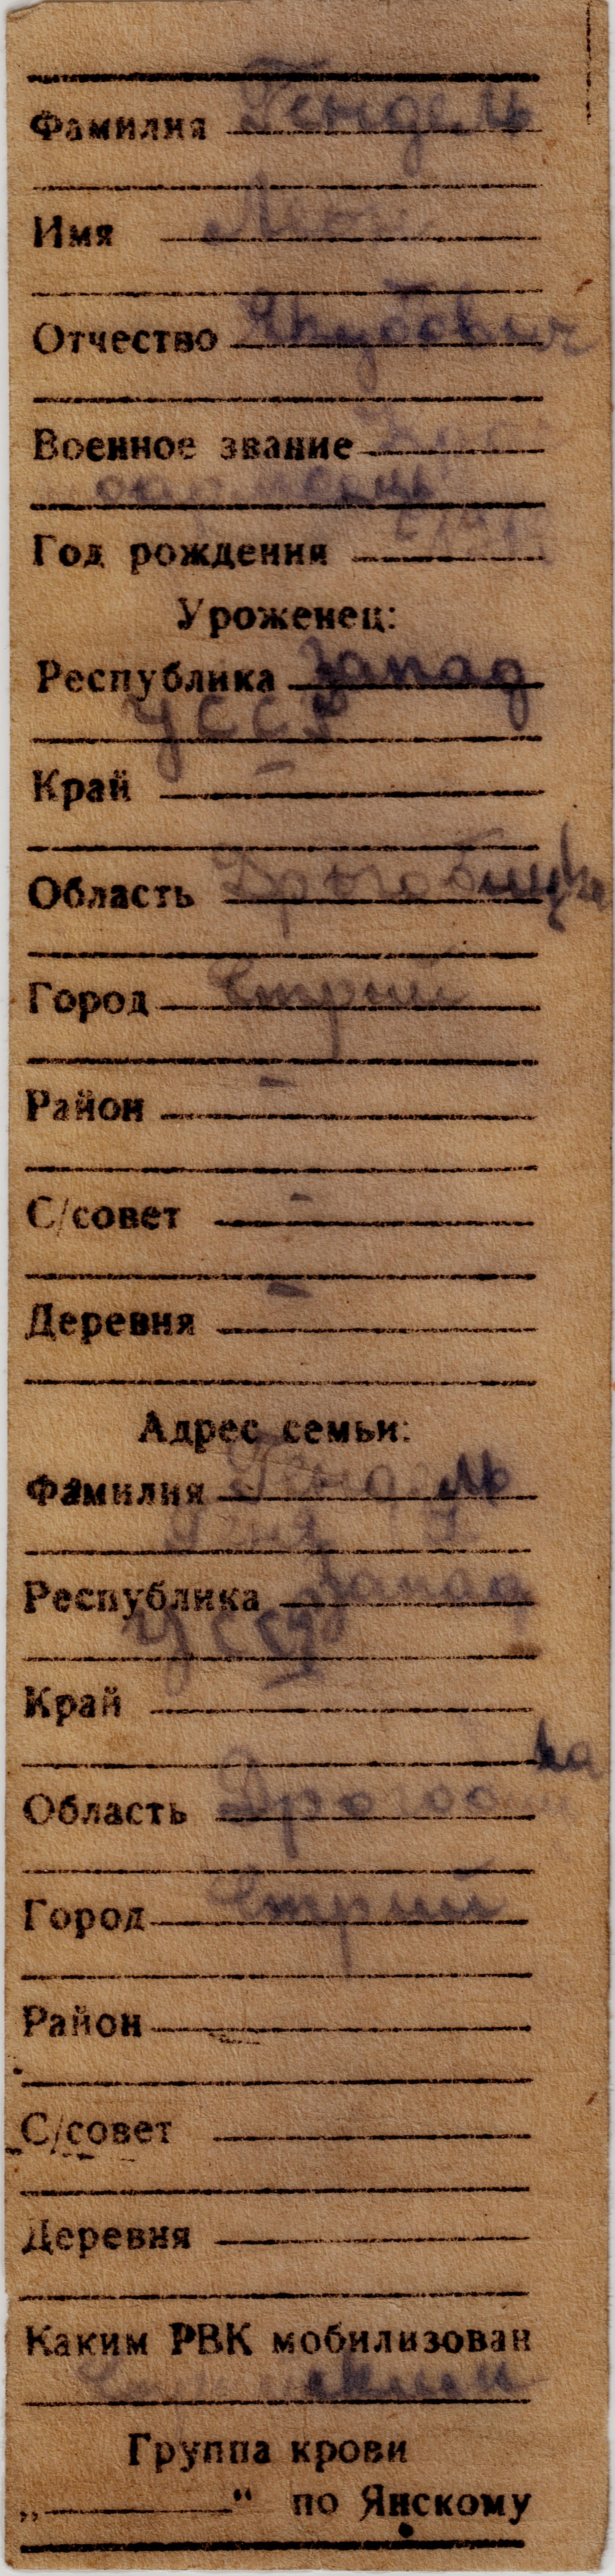 Фамилия Гендель
Имя
Отчество Якубович
Военное звание
Год рождения
Уроженец:
Республика Запад
УССР
Край -
Область Дрогобицка
Город Стрий
Район -
С/совет -
Деревня -
Адрес семьи:
Фамилия Гендель
Республика Запад
УССР
Край -
Область
Город Стрий
Район
С/совет
Деревня
Каким РВК мобилизован
Группа крови
„ “ по Янскому